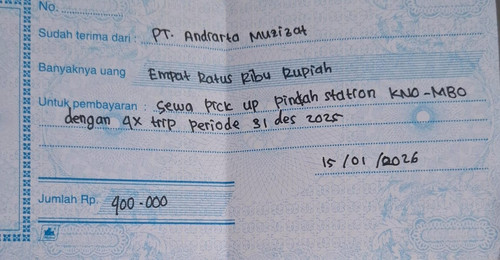 No.
Sudah terima dari : PT. Andrarta Muzizat
Banyaknya uang Empat Ratus Ribu Rupiah
Untuk pembayaran : Sewa Pick up pindah station KNO-MBO
dengan 4x trip periode 31 des 2025
15/01/2026
Jumlah Rp. 400.000